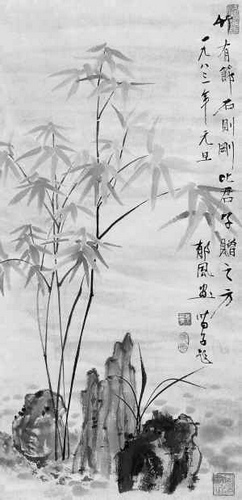 竹有節石則剛比君子贈之方
一九八三年元旦
郁風畫苗子題